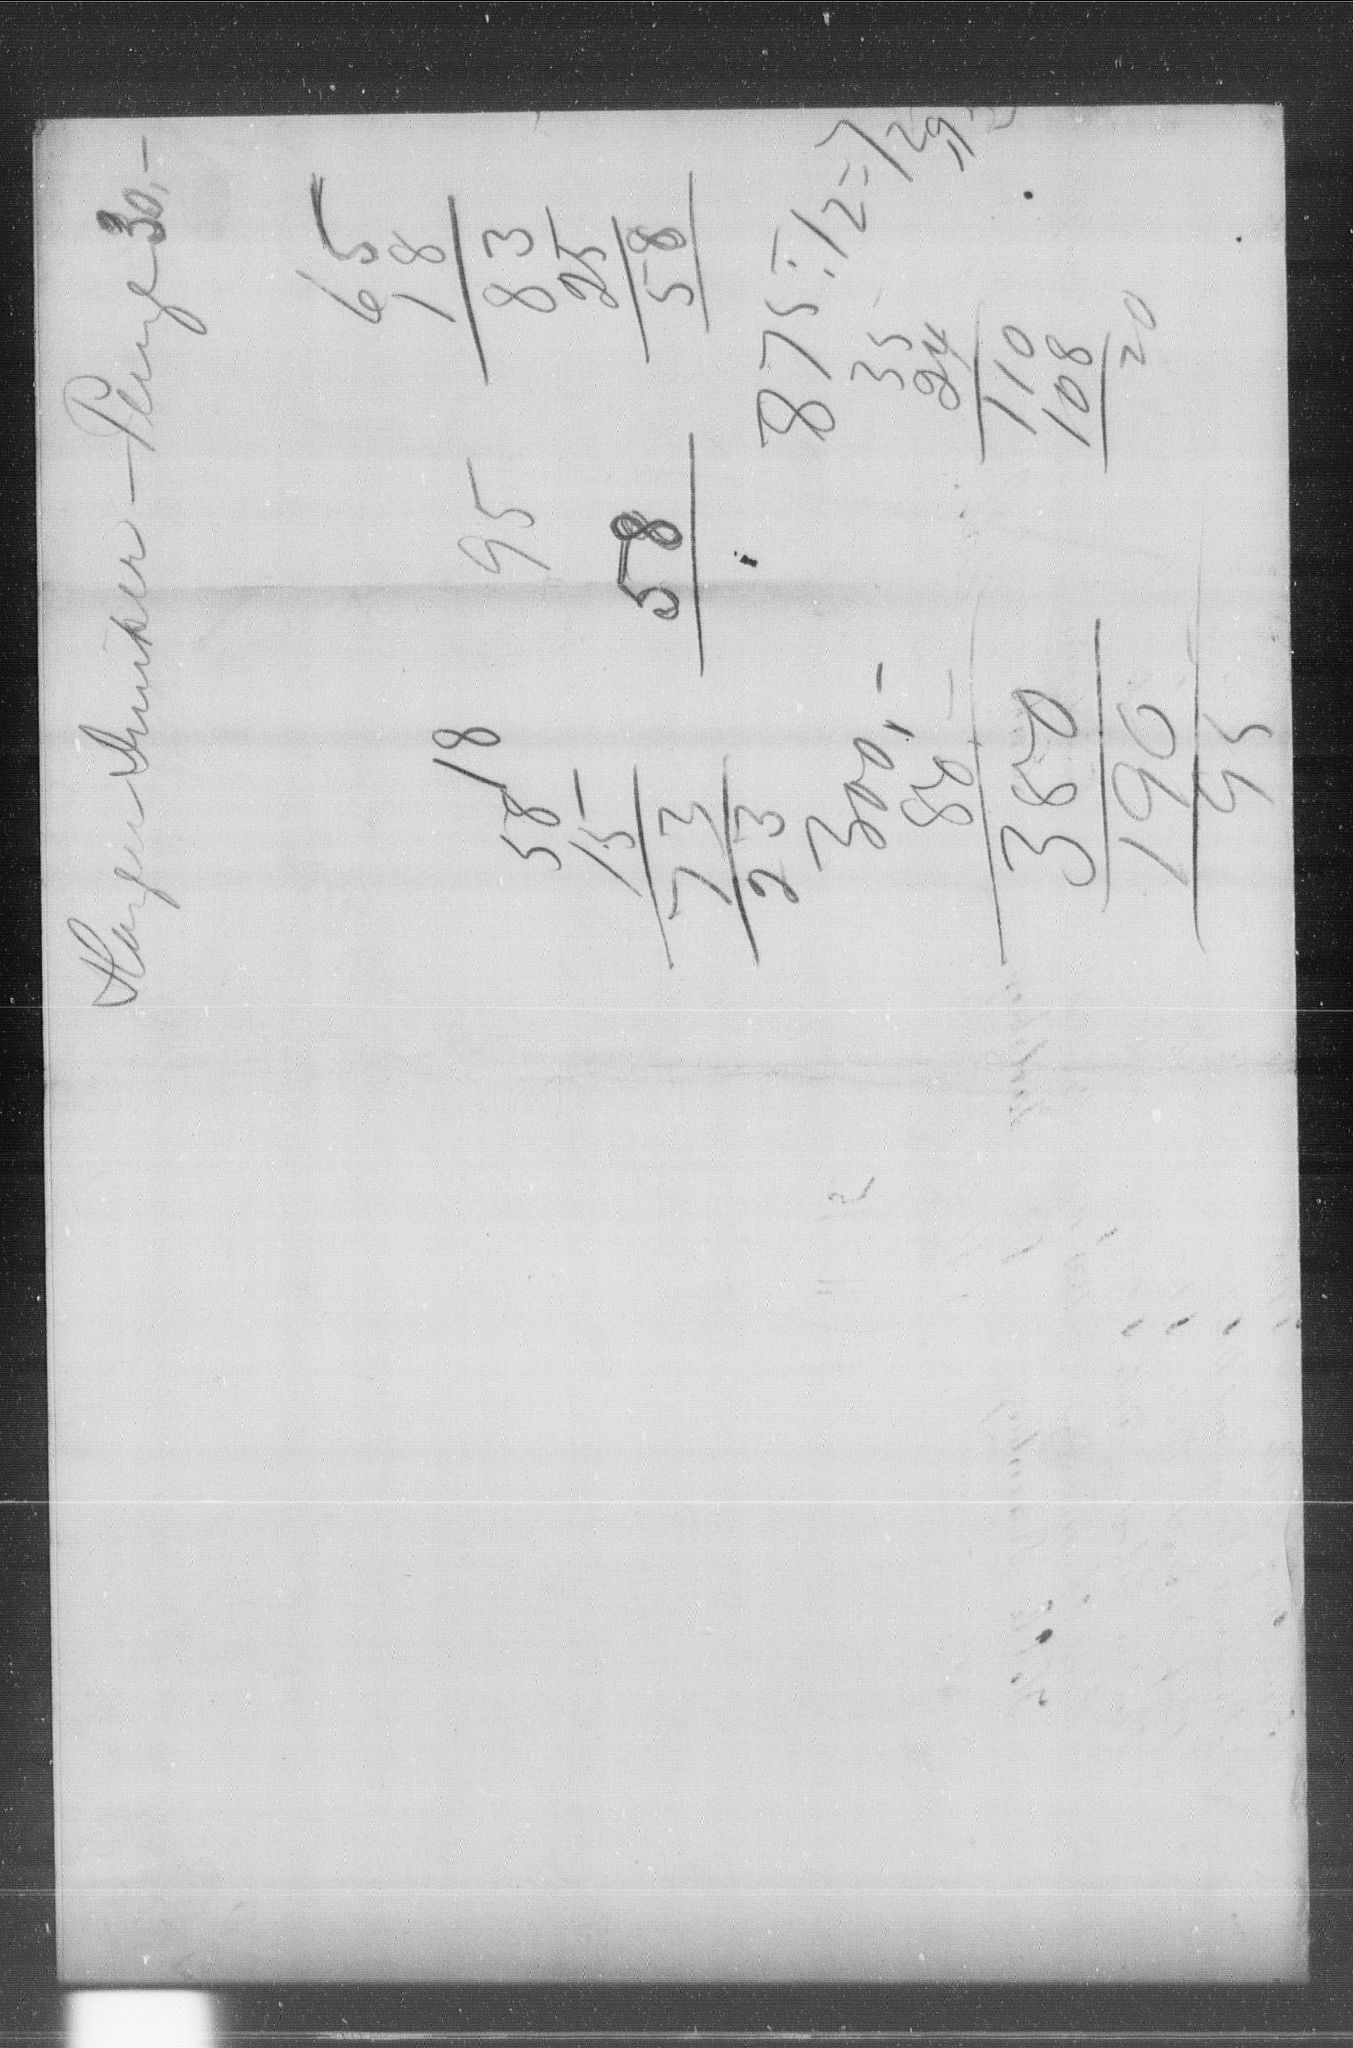 — Penge 30,-
18
58
15 -
73
23
95
58
65
18
83
25
58
300,-
80 -
380
190
95
875:12=729
35
24
110
108
20